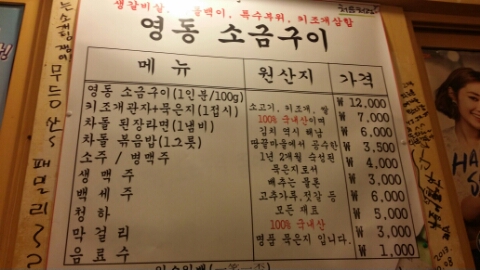 생갈비살, 꽃등백이, 특수부위, 치조개삼합
영동 소금구이
메뉴 원산지 가격
영동 소금구이(1인분/100g) ₩ 12,000
치조개관자+묵은지(1접시) ₩ 7,000
차돌 된장라면(1냄비) ₩ 6,000
차돌 볶음밥(1그릇) ₩ 3,500
소주 / 병맥주 ₩ 4,000
생맥주 ₩ 3,000
백세주 ₩ 6,000
청하 ₩ 5,000
막걸리 ₩ 3,000
음료수 ₩ 1,000
소고기, 치조개, 쌀
100% 국내산이며
김치 역시 해남
땅끝마을에서 공수한
1년 2개월 숙성된
묵은지로서
배추는 물론
고추가루, 젓갈 등
모든 재료
100% 국내산
명품 묵은지 입니다.
무등산
패밀리